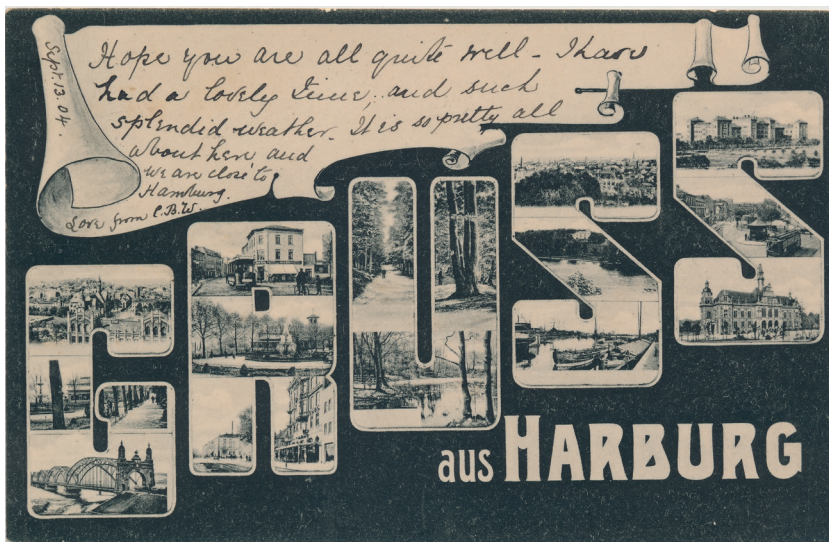 Sept. 13. 04.
Hope you are all quite well - I have
had a lovely time, and such
splendid weather. It is so pretty all
about here and
we are close to
Hamburg.
Love from C.B.W.
GRUSS
aus HARBURG